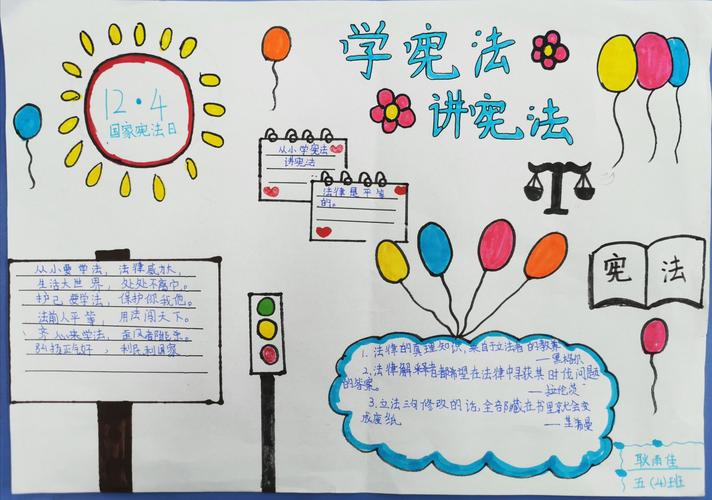 学宪法
讲宪法
12·4
国家宪法日
从小学宪法
讲宪法
法律是平等
的。
宪法
从小要学法，法律威力大，
生活大世界，处处不离它。
护己要学法，保护你我他。
法前人平等，用法闯天下。
齐心来学法，
弘扬正气好，利民利国家
1.法律的真理知识，来自于立法者的教养
——黑格尔
2.法律解释者都希望在法律中寻获其时代问题
的答案。
——拉伦茨
3.立法三句修改的话，全部藏在书里就会变
成废纸
耿雨佳
五（4）班